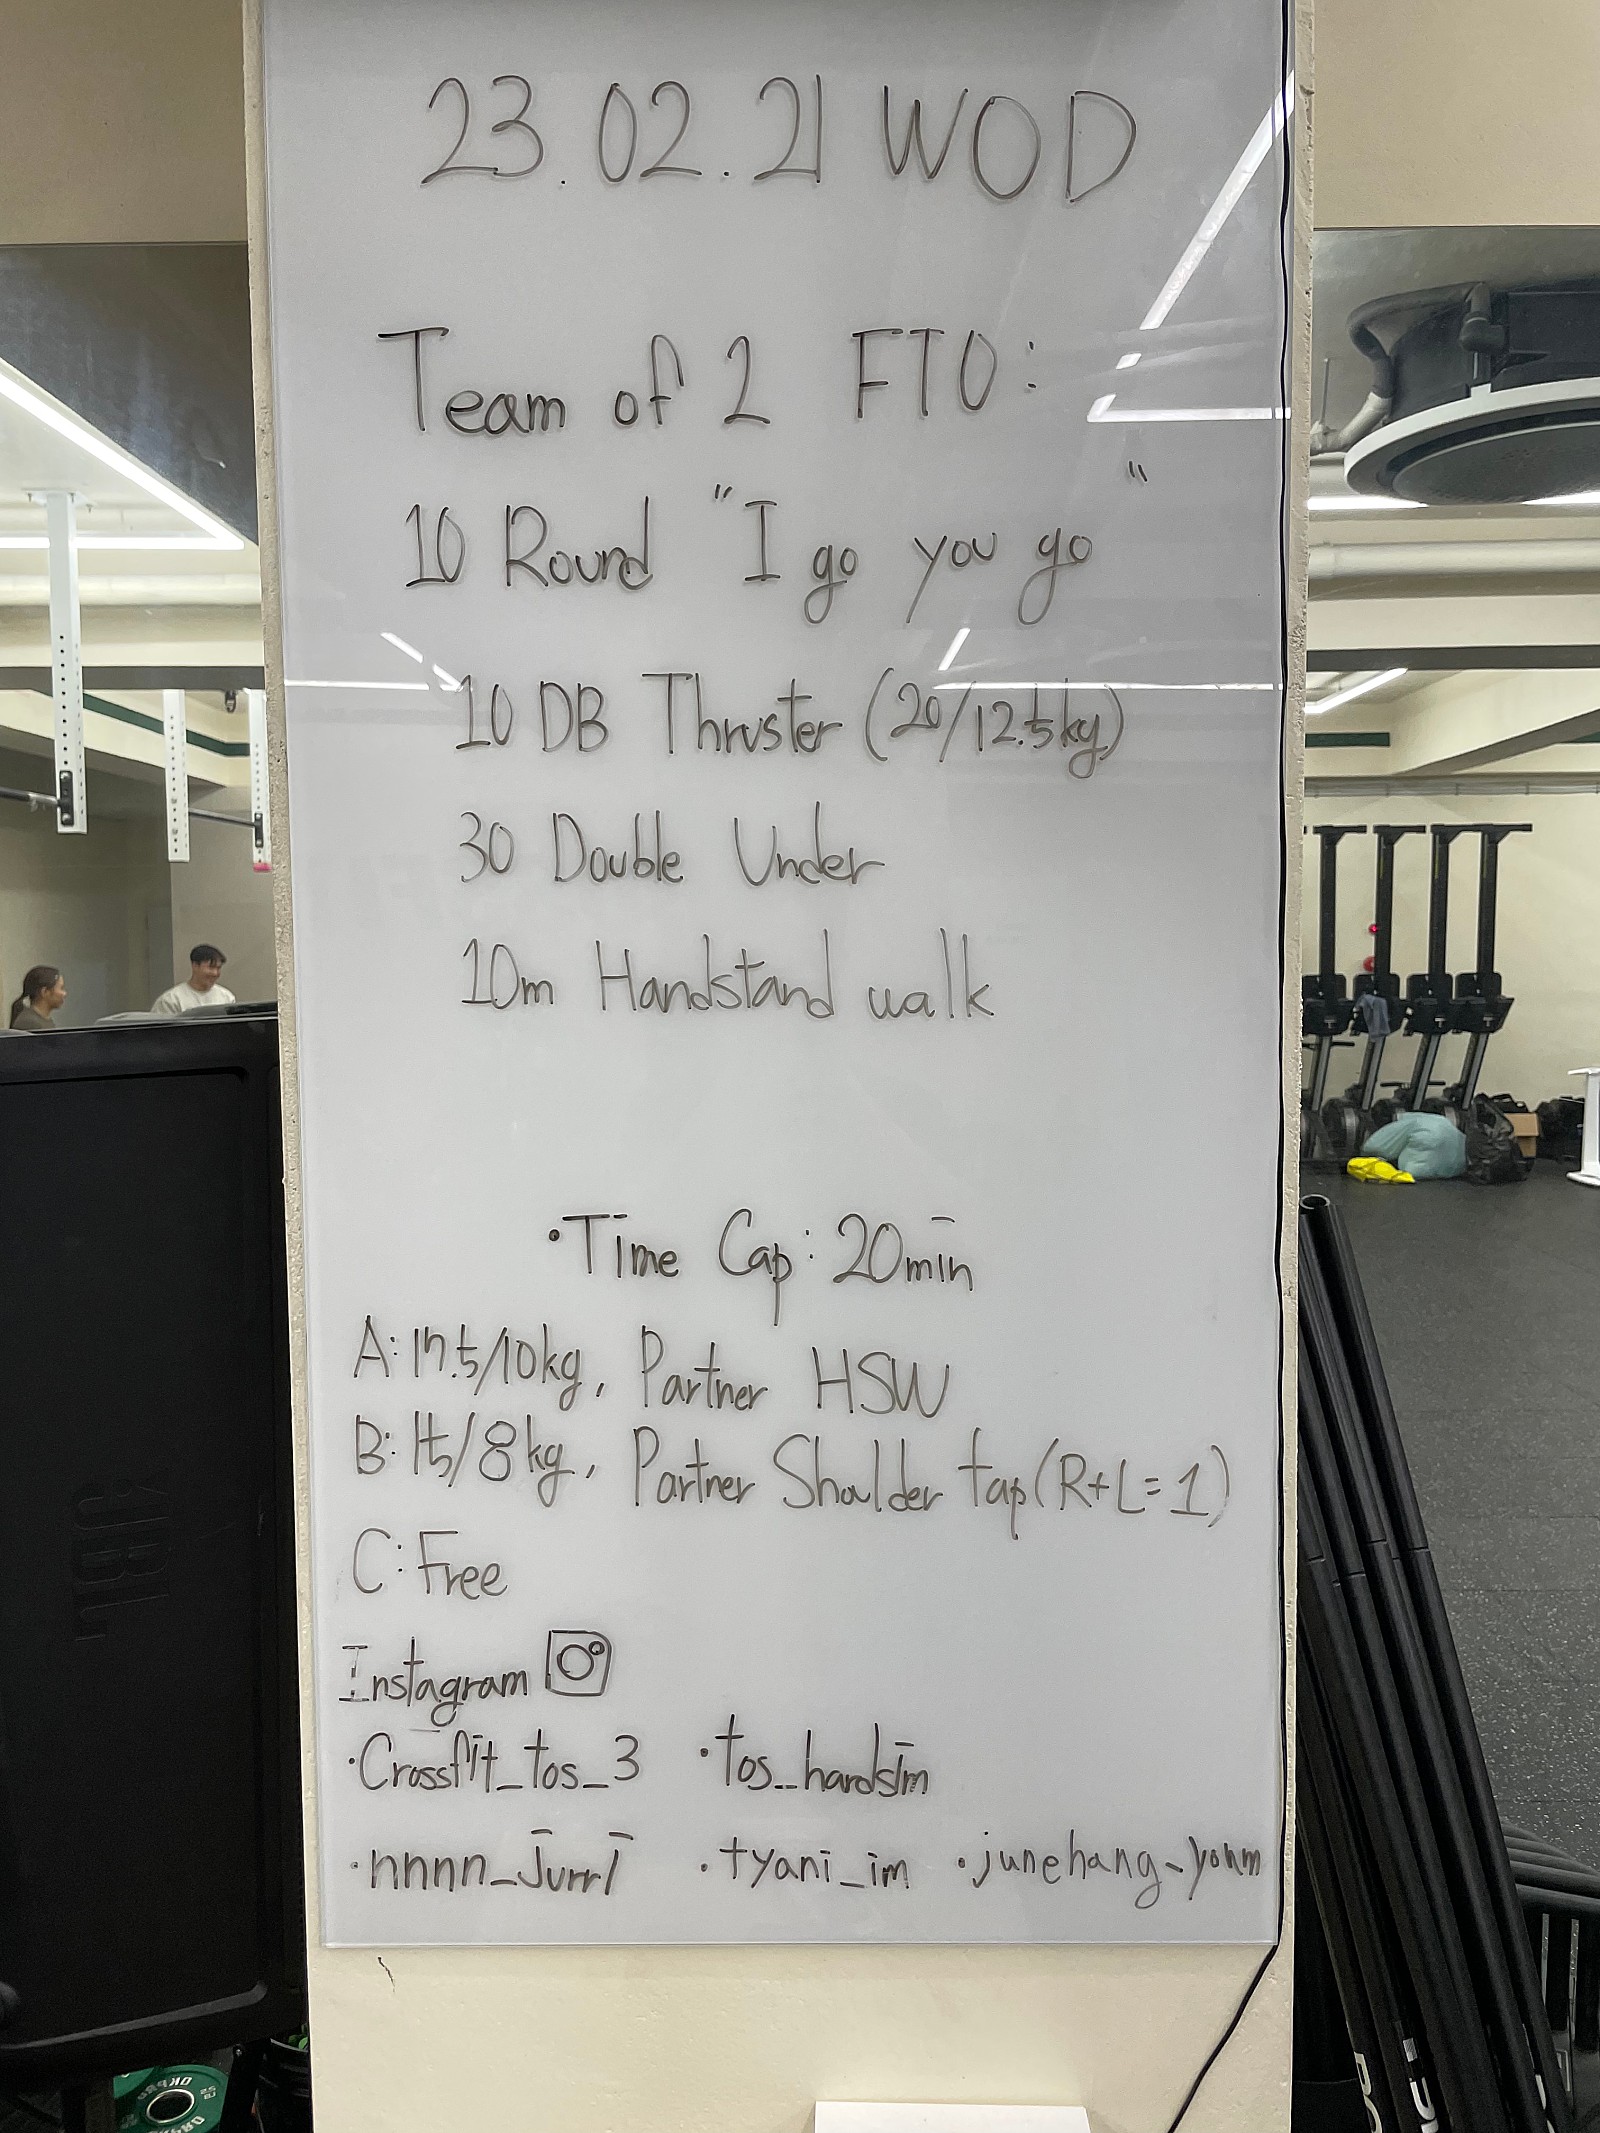 23.02.21 WOD
Team of 2 FTO:
10 Round "I go you go"
10 DB Thruster (20/12.5kg)
30 Double Under
10m Handstand walk
•Time Cap: 20min
A: 17.5/10kg, Partner HSW
B: 15/8kg, Partner Shoulder tap (R+L=1)
C: Free
Instagram
•Crossfit_tos_3 •tos_handsim
•nnnn_Jurrl •tyani_im •junehang_yohm
JBL